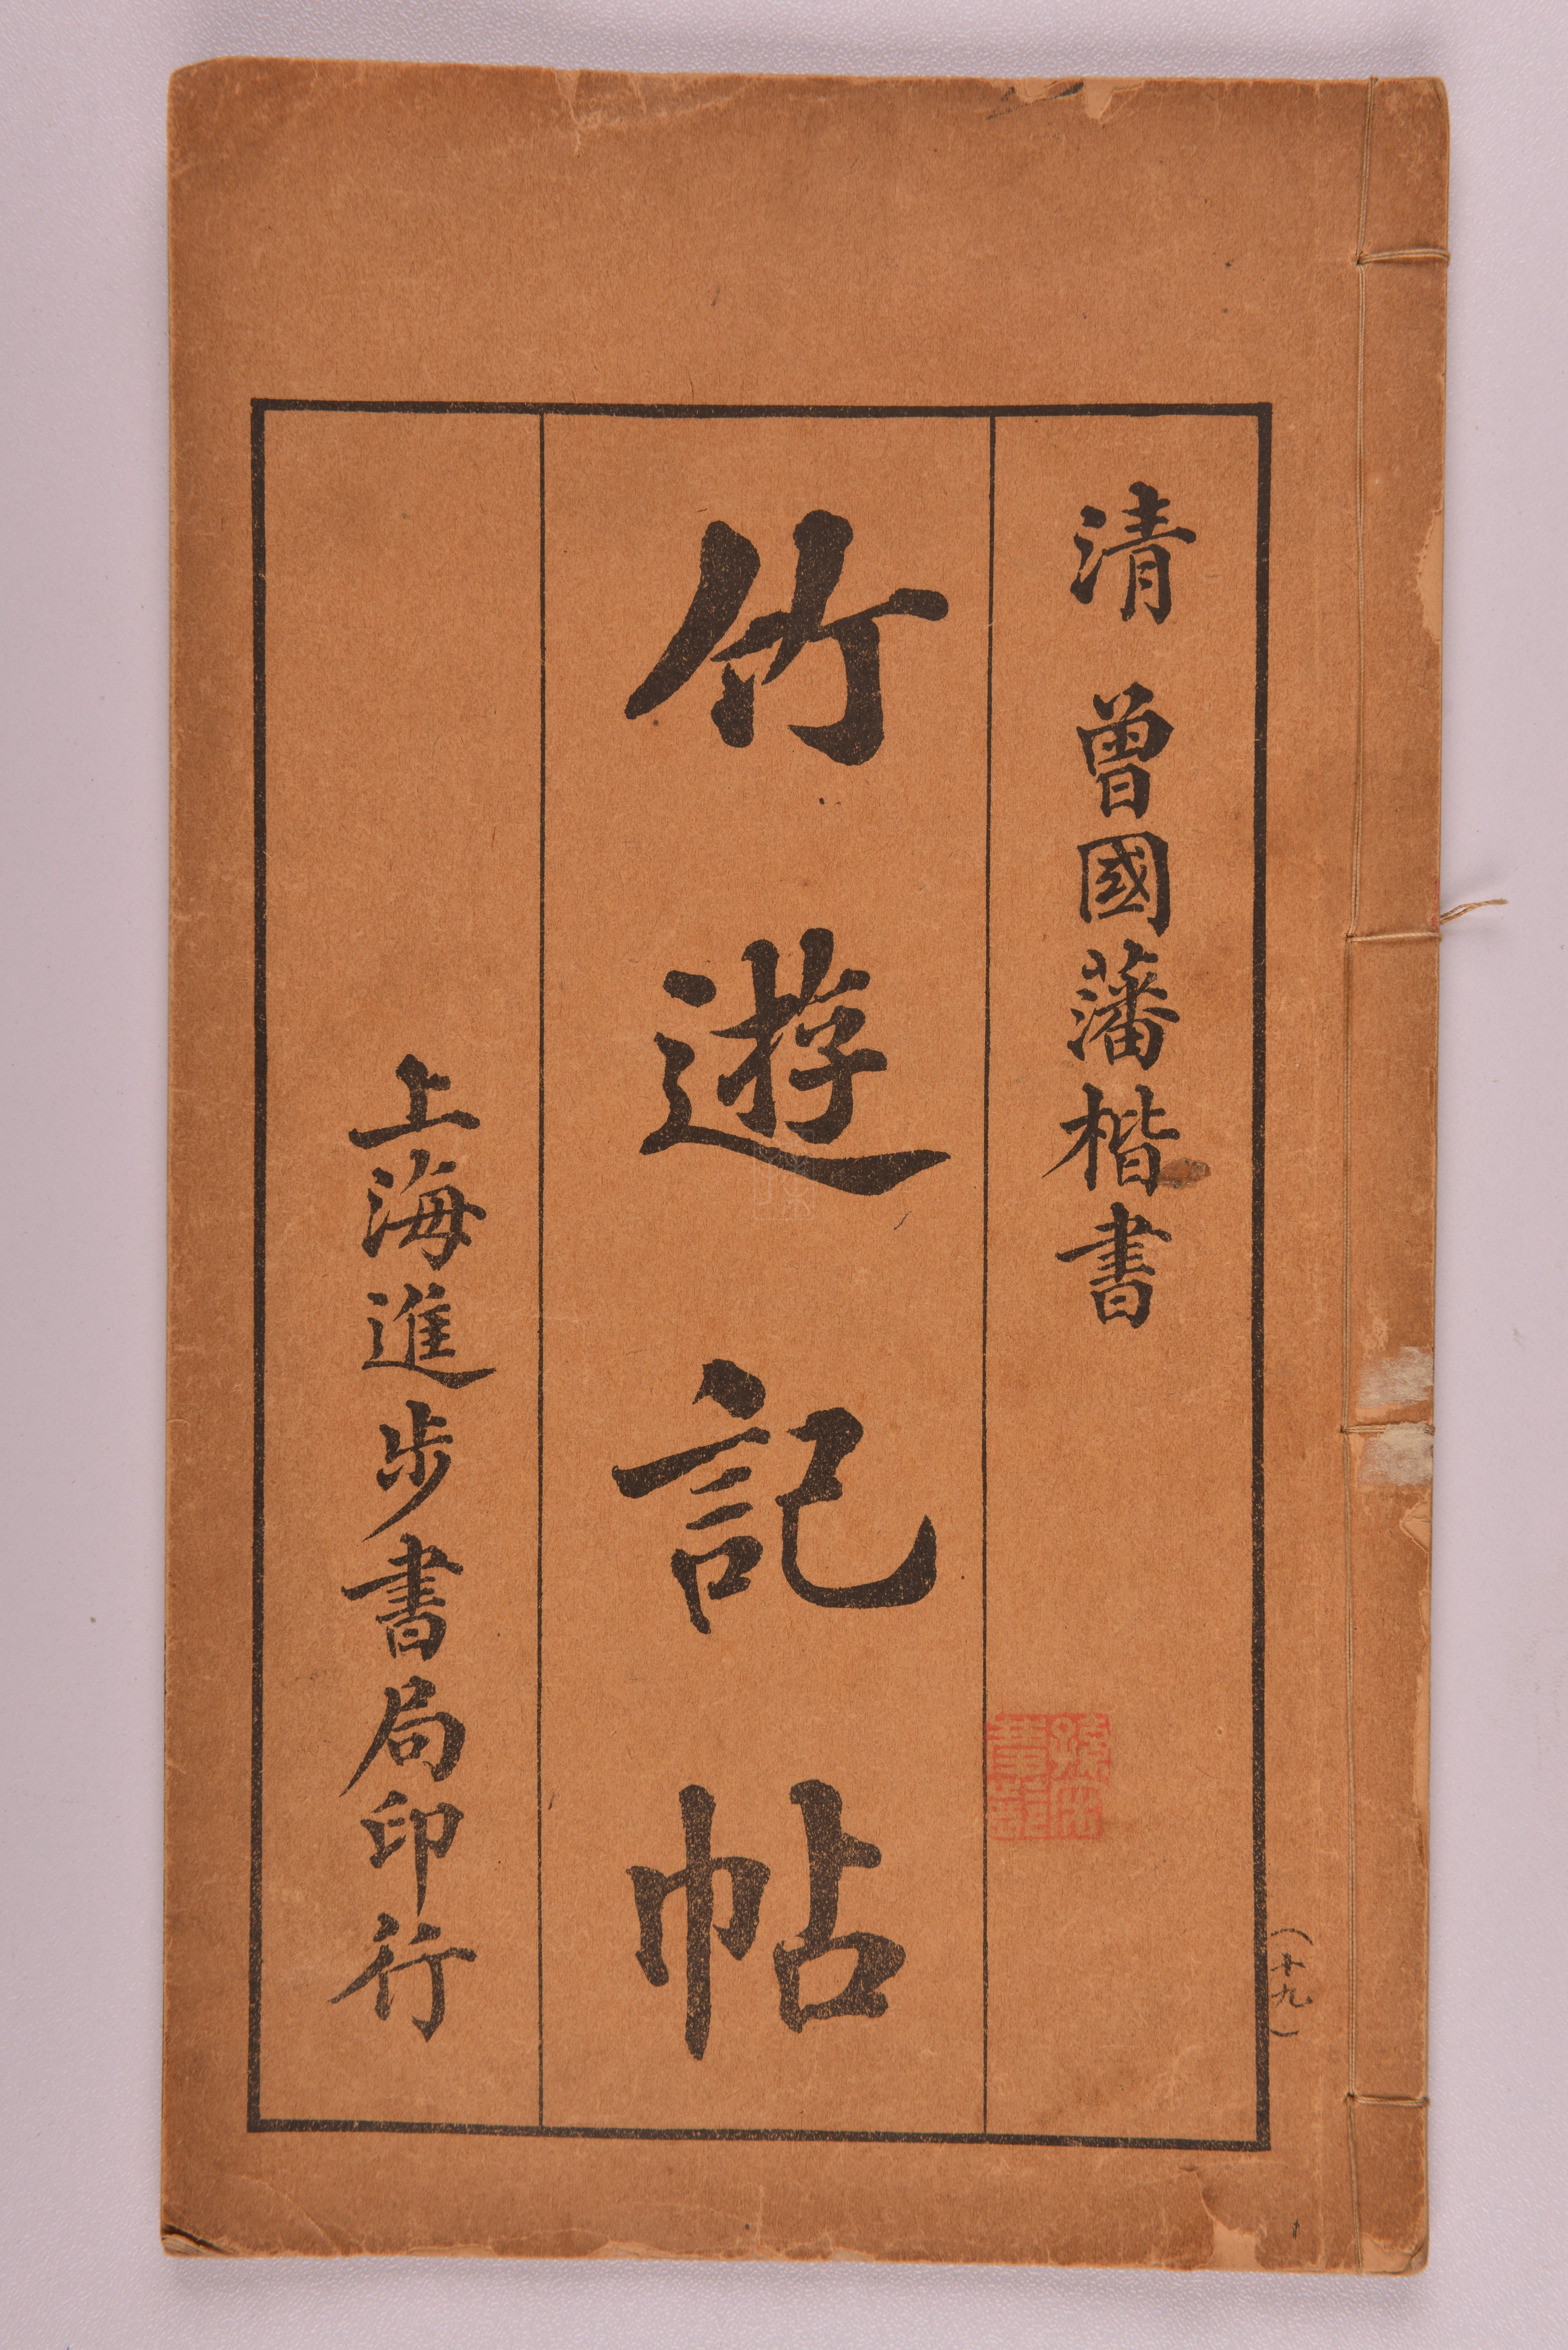 清 曾國藩楷書
竹遊記帖
上海進步書局印行
（十九）